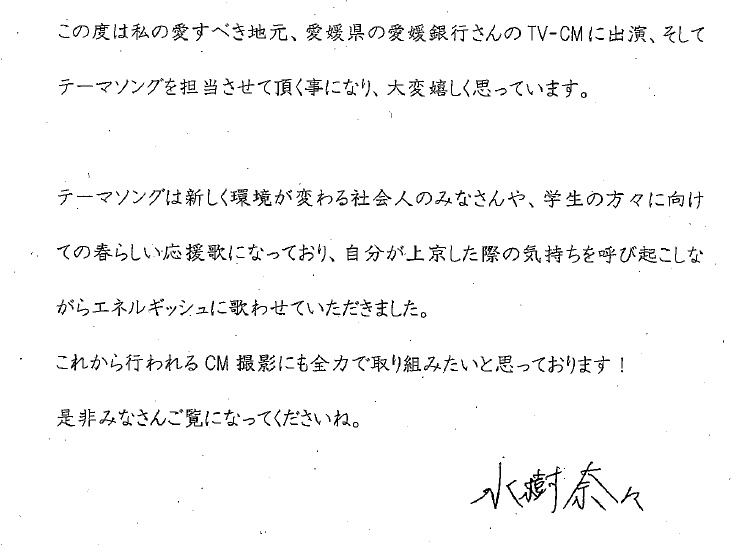 この度は私の愛すべき地元、愛媛県の愛媛銀行さんのTV-CMに出演、そして
テーマソングを担当させて頂く事になり、大変嬉しく思っています。
テーマソングは新しく環境が変わる社会人のみなさんや、学生の方々に向け
ての春らしい応援歌になっており、自分が上京した際の気持ちを呼び起こしな
がらエネルギッシュに歌わせていただきました。
これから行われるCM撮影にも全力で取り組みたいと思っております！
是非みなさんご覧になってくださいね。
水樹奈々